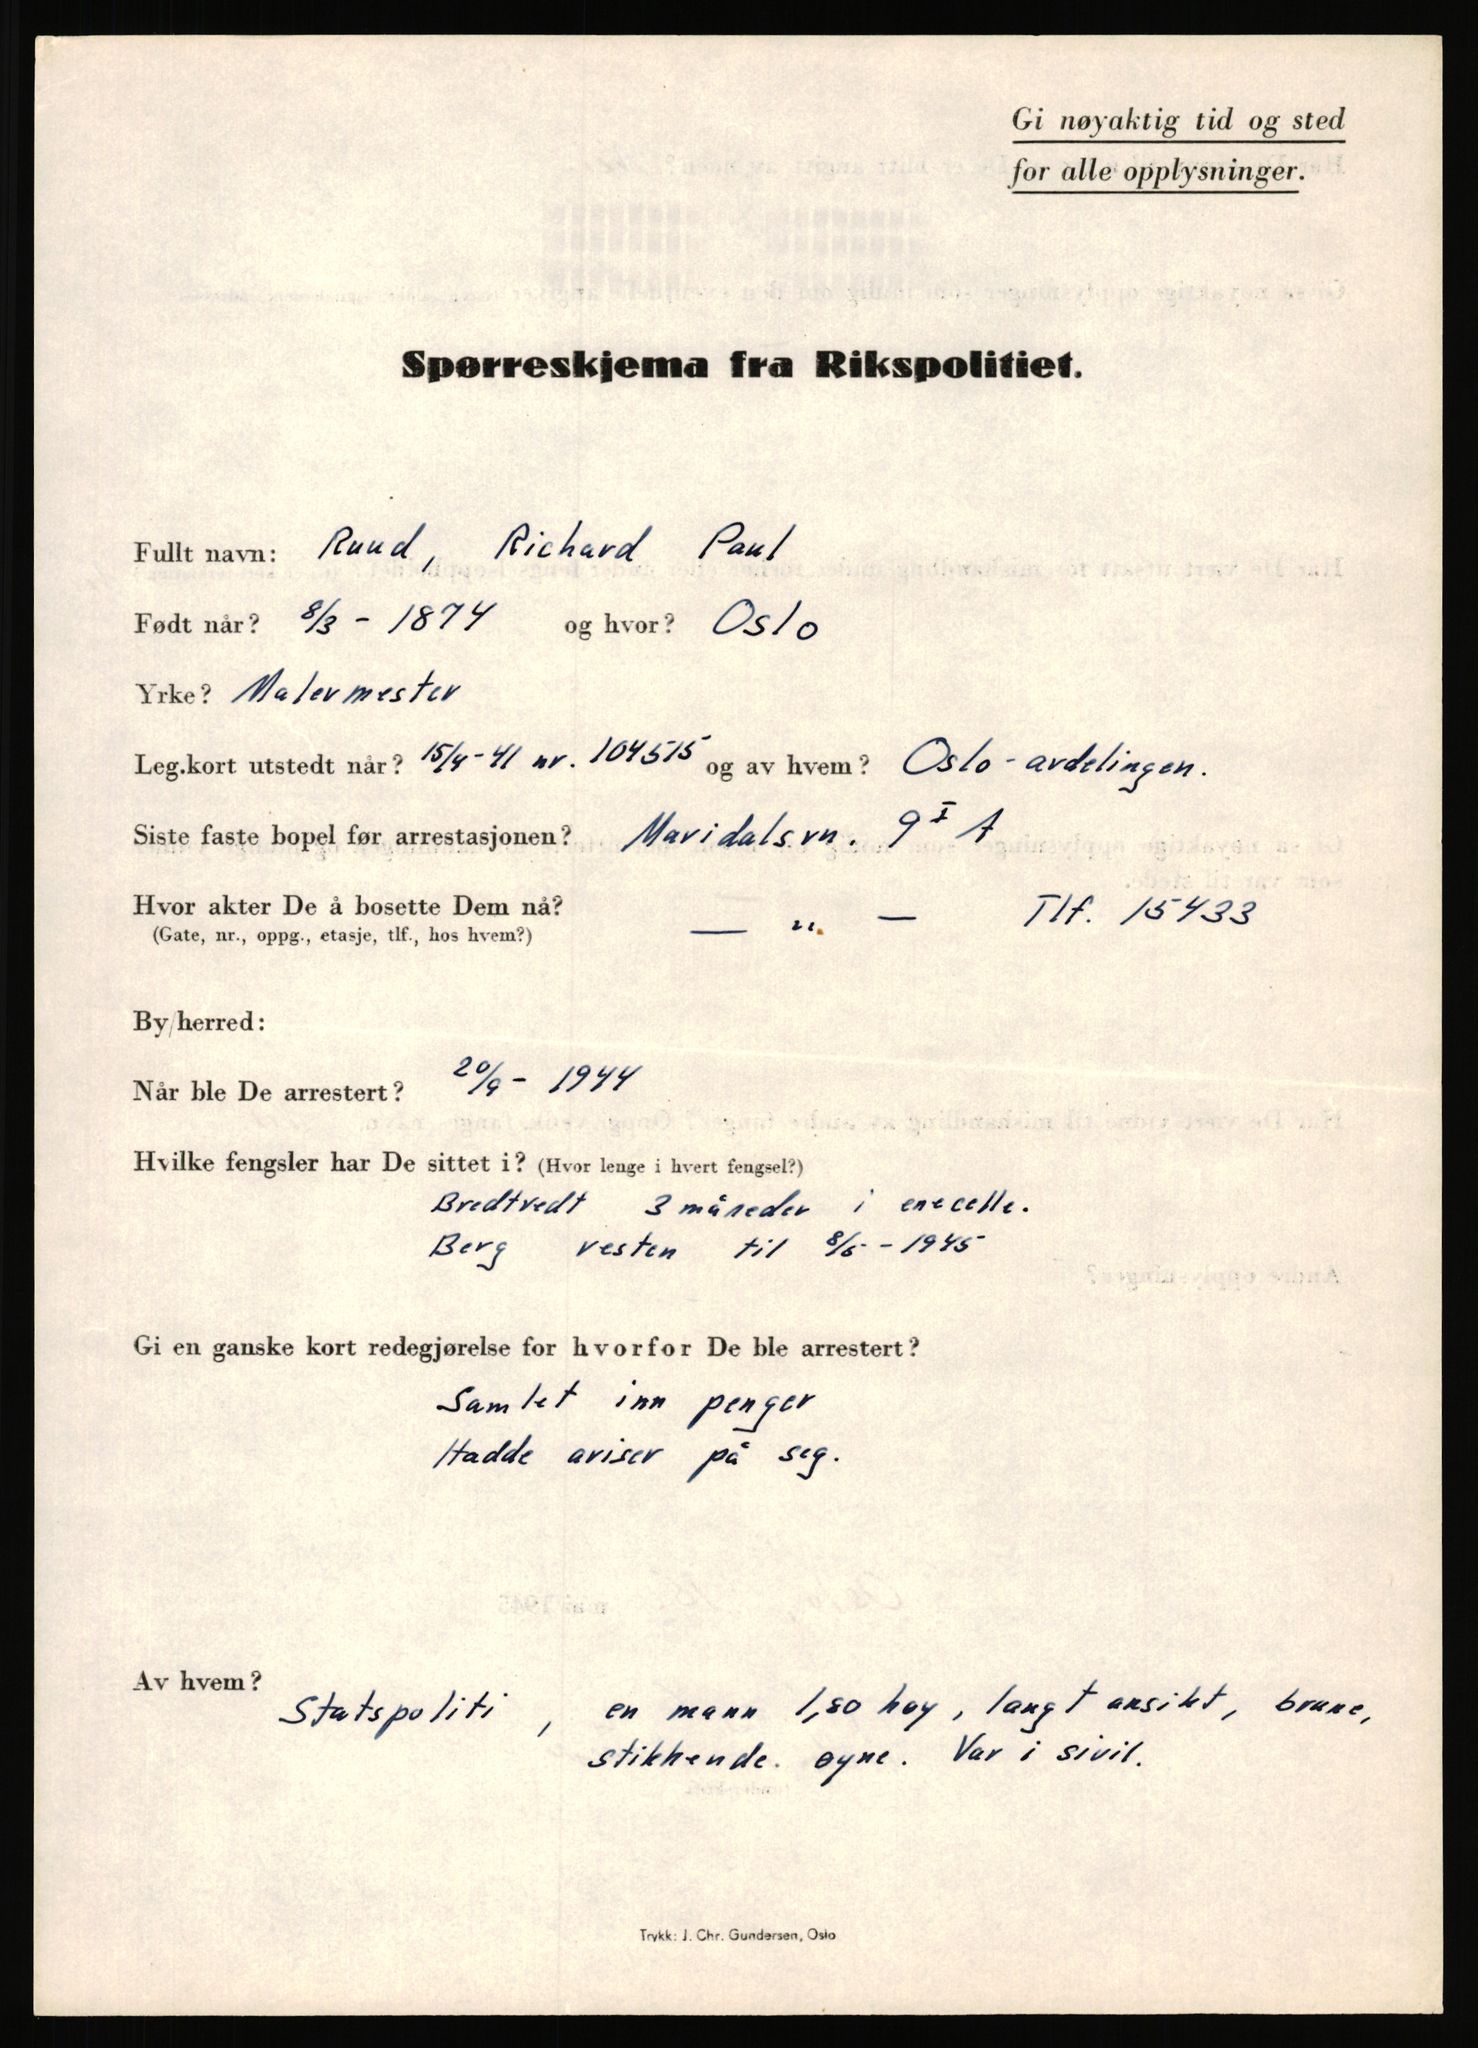 Gi nøyaktig tid og sted
for alle opplysninger.
Spørreskjema fra Rikspolitiet.
Fullt navn: Ruud, Richard Paul
Født når? 8/3 - 1874 og hvor? Oslo
Yrke? Malermester
Leg.kort utstedt når? 15/4-41 nr. 104515 og av hvem? Oslo-avdelingen.
Siste faste bopel før arrestasjonen? Maridalsvn. 9 I A
Hvor akter De å bosette Dem nå? — " — Tlf. 15433
(Gate, nr., oppg., etasje, tlf., hos hvem?)
By/herred:
Når ble De arrestert? 20/9 - 1944
Hvilke fengsler har De sittet i? (Hvor lenge i hvert fengsel?)
Bredtvedt 3 måneder i enecelle.
Berg resten til 8/5 - 1945
Gi en ganske kort redegjørelse for hvorfor De ble arrestert?
Samlet inn penger
Hadde aviser på seg.
Av hvem?
Statspoliti, en mann 1,80 høy, langt ansikt, brune,
stikkende øyne. Var i sivil.
Trykk: J. Chr. Gundersen, Oslo